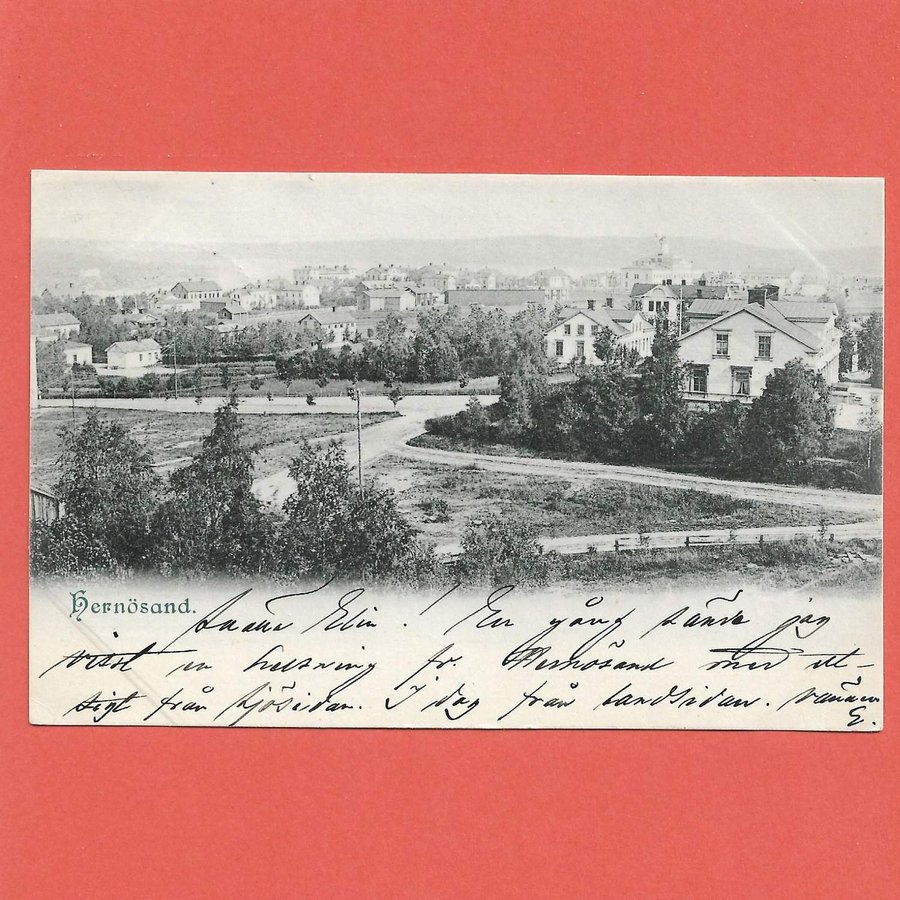 Hernösand.
Snälla Elin! En gång sände jag
visst en helsning fr. Hernösand med ut-
sigt från sjösidan. I dag från landsidan. Vännen
E.